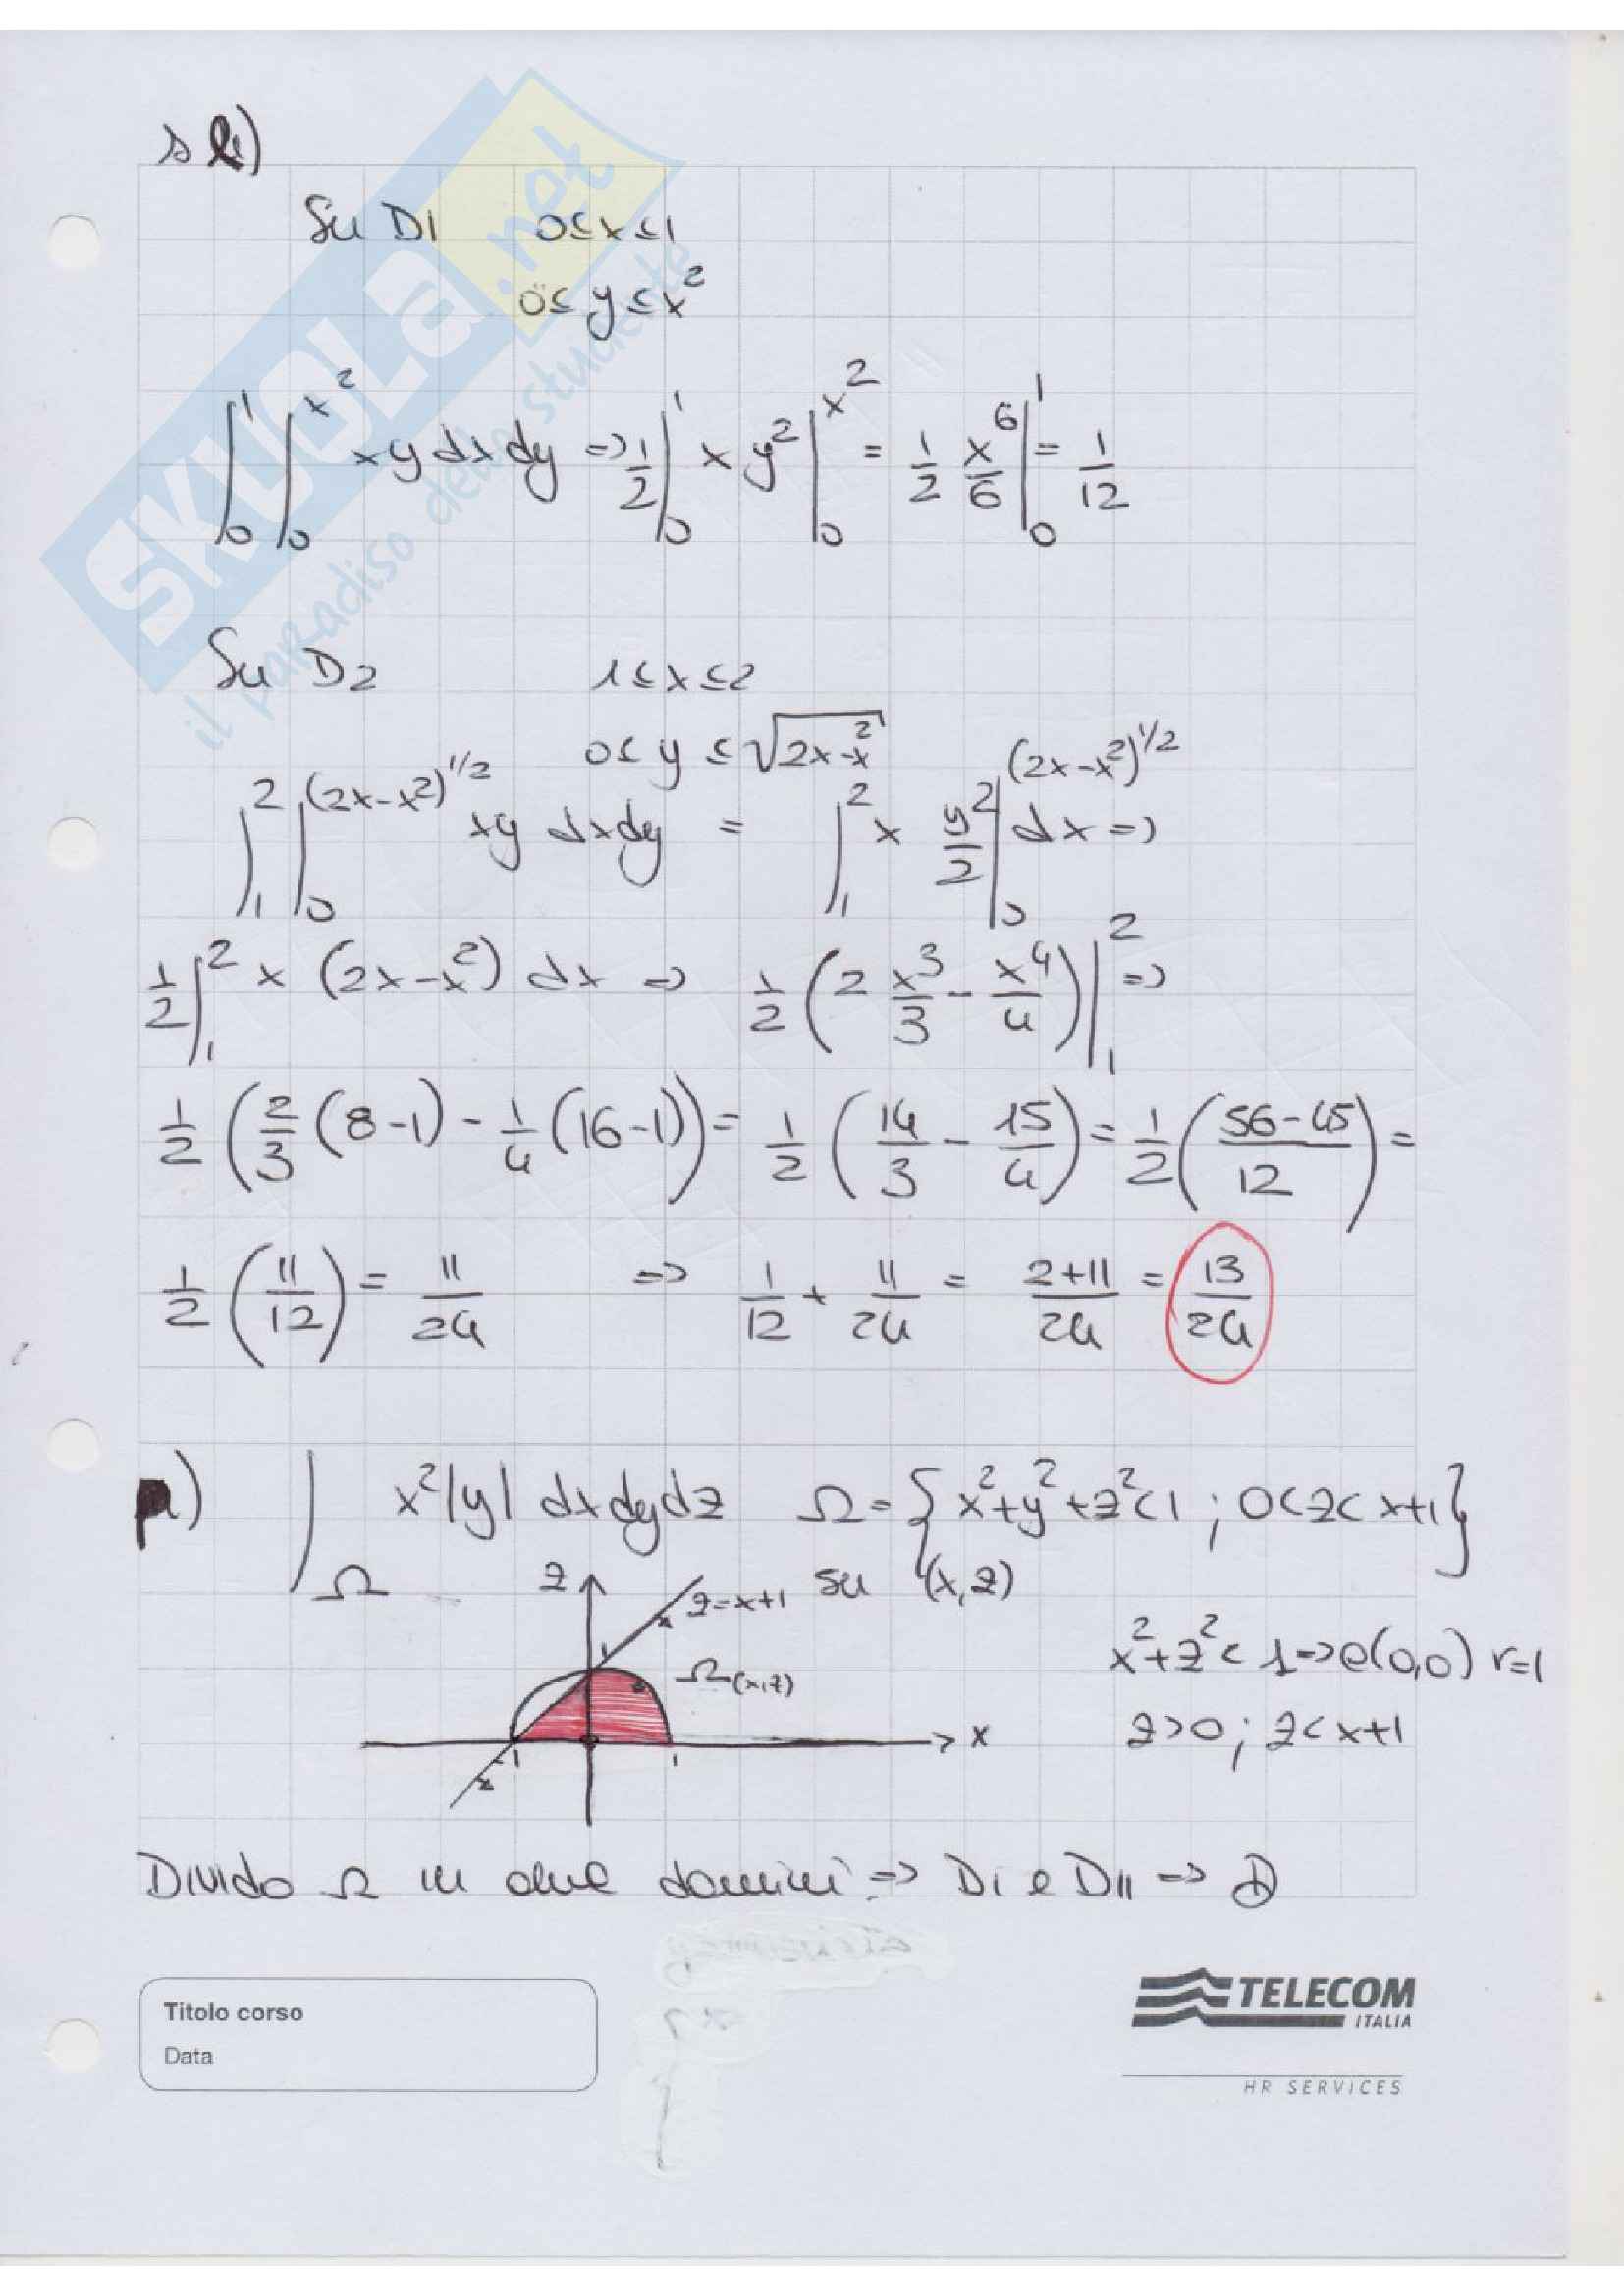 s l)
Su D1 0≤x≤1
0≤y≤x²
∫₀¹ ∫₀^x² xy dx dy => 1/2 ∫₀¹ x y² |₀^x² = 1/2 x⁶/6 |₀¹ = 1/12
Su D2 1≤x≤2
0≤y≤√(2x-x²)
∫₁² ∫₀^(2x-x²)^1/2 xy dx dy = ∫₁² x y²/2 |₀^(2x-x²)^1/2 dx =>
1/2 ∫₁² x (2x-x²) dx => 1/2 (2 x³/3 - x⁴/4) |₁² =>
1/2 (2/3 (8-1) - 1/4 (16-1)) = 1/2 (14/3 - 15/4) = 1/2 (56-45/12) =
1/2 (11/12) = 11/24 => 1/12 + 11/24 = 2+11/24 = 13/24
∫_Ω x²|y| dx dy dz Ω={x²+y²+z²<1; 0<z<x+1}
z z=x+1 su (x,z)
x²+z²<1 => c(0,0) r=1
1 Ω(x,z)
z>0; z<x+1
x
-1 1
Divido Ω in due domini => DI e DII =>
Titolo corso
Data
TELECOM
ITALIA
HR SERVICES
SKUOLA.net
il paradiso dello studente